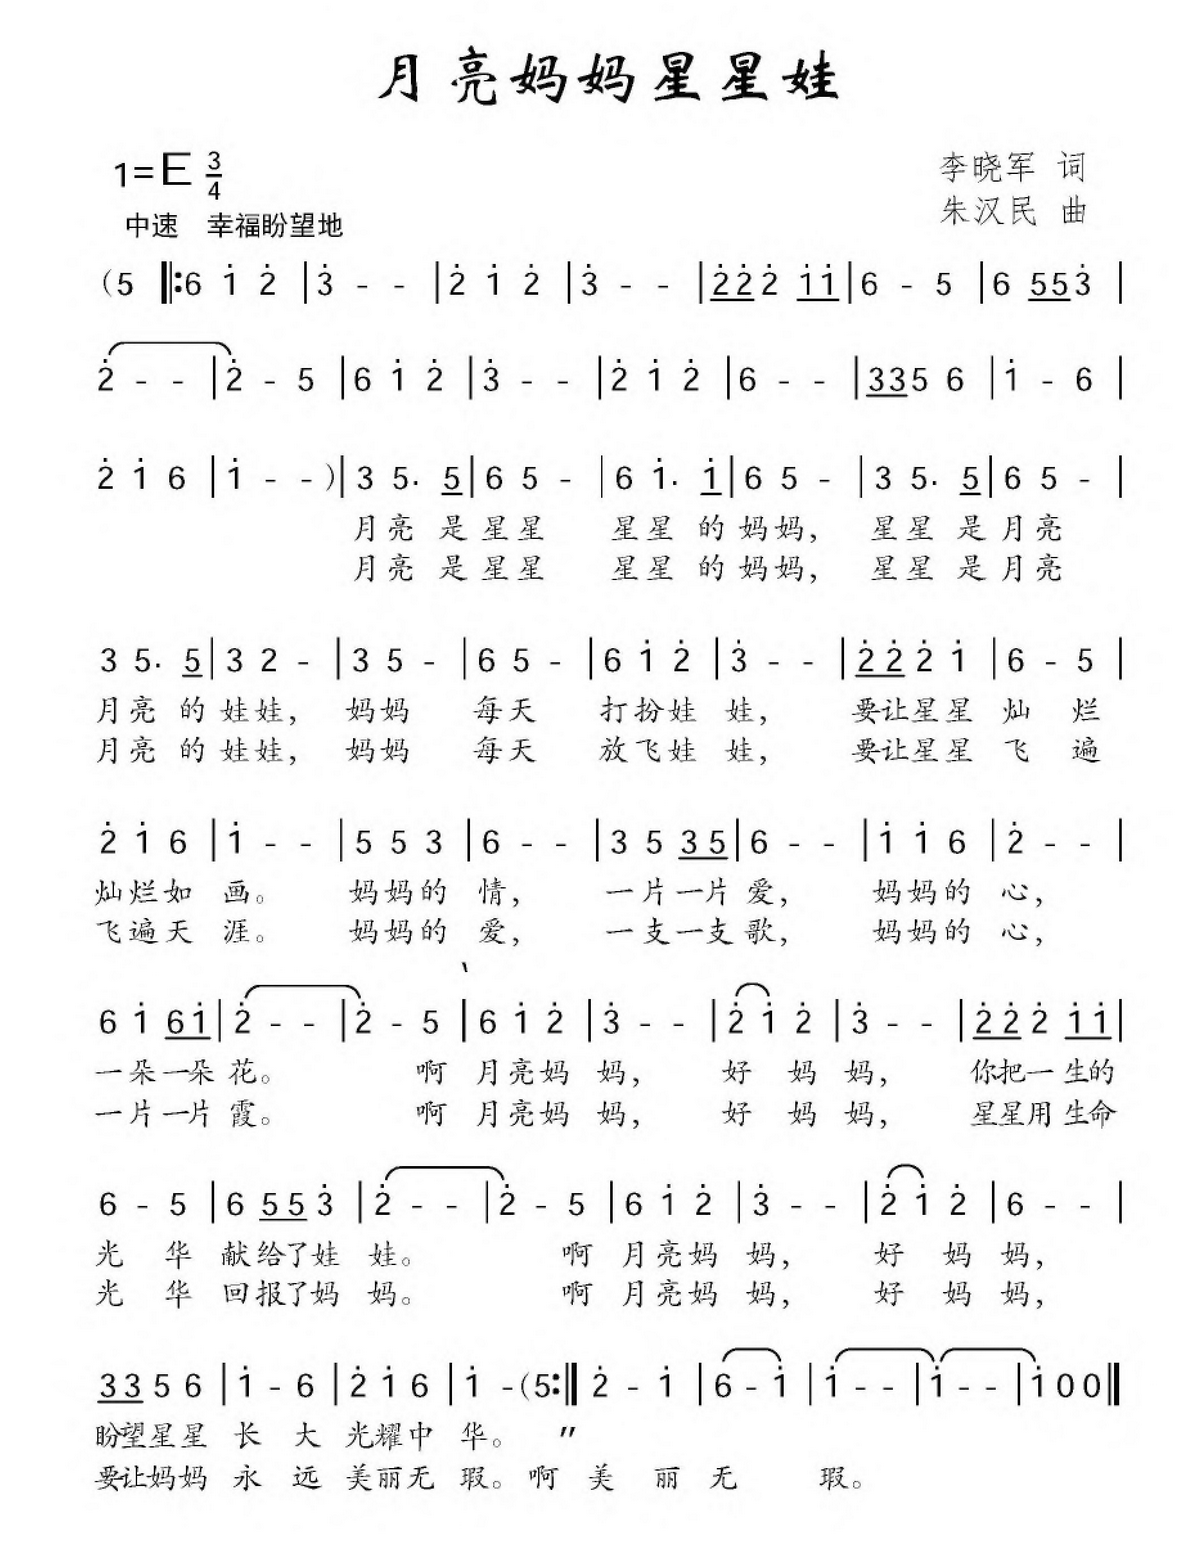 月亮妈妈星星娃
1=E 3/4
李晓军 词
中速 幸福盼望地
朱汉民 曲
(5 ‖:6 1̇ 2̇ |3̇ - - |2̇ 1̇ 2̇ |3̇ - - |2̇2̇2̇ 1̇1̇|6 - 5 |6 553̇ |
2̇ - - |2̇ - 5 |6 1̇ 2̇ |3̇ - - |2̇ 1̇ 2̇ |6 - - |335 6 |1̇ - 6 |
2̇ 1̇ 6 |1̇ - -)|3 5. 5|6 5 - |6 1̇. 1̇|6 5 - |3 5. 5|6 5 - |
月亮 是星星 星星 的妈妈, 星星 是月亮
月亮 是星星 星星 的妈妈, 星星 是月亮
3 5. 5|3 2 - |3 5 - |6 5 - |6 1̇ 2̇ |3̇ - - |2̇2̇2̇ 1̇ |6 - 5 |
月亮 的娃娃, 妈妈 每天 打扮娃 娃, 要让星星 灿 烂
月亮 的娃娃, 妈妈 每天 放飞娃 娃, 要让星星 飞 遍
2̇ 1̇ 6 |1̇ - - |5 5 3 |6 - - |3 5 35|6 - - |1̇ 1̇ 6 |2̇ - - |
灿烂如 画。 妈妈的 情, 一片一片 爱, 妈妈的 心,
飞遍天 涯。 妈妈的 爱, 一支一支 歌, 妈妈的 心,
6 1̇ 61̇|2̇ - - |2̇ - 5 |6 1̇ 2̇ |3̇ - - |2̇ 1̇ 2̇ |3̇ - - |2̇2̇2̇ 1̇1̇|
一朵一朵 花。 啊 月亮妈 妈, 好 妈 妈, 你把一生的
一片一片 霞。 啊 月亮妈 妈, 好 妈 妈, 星星用生命
6 - 5 |6 553̇ |2̇ - - |2̇ - 5 |6 1̇ 2̇ |3̇ - - |2̇ 1̇ 2̇ |6 - - |
光 华 献给了娃 娃。 啊 月亮妈 妈, 好 妈 妈,
光 华 回报了妈 妈。 啊 月亮妈 妈, 好 妈 妈,
335 6 |1̇ - 6 |2̇ 1̇ 6 |1̇ -(5:‖ 2̇ - 1̇ |6 - 1̇ |1̇ - - |1̇ - - |1̇ 0 0‖
盼望星星 长 大 光耀中 华。 〃
要让妈妈 永 远 美丽无 瑕。啊 美 丽 无 瑕。